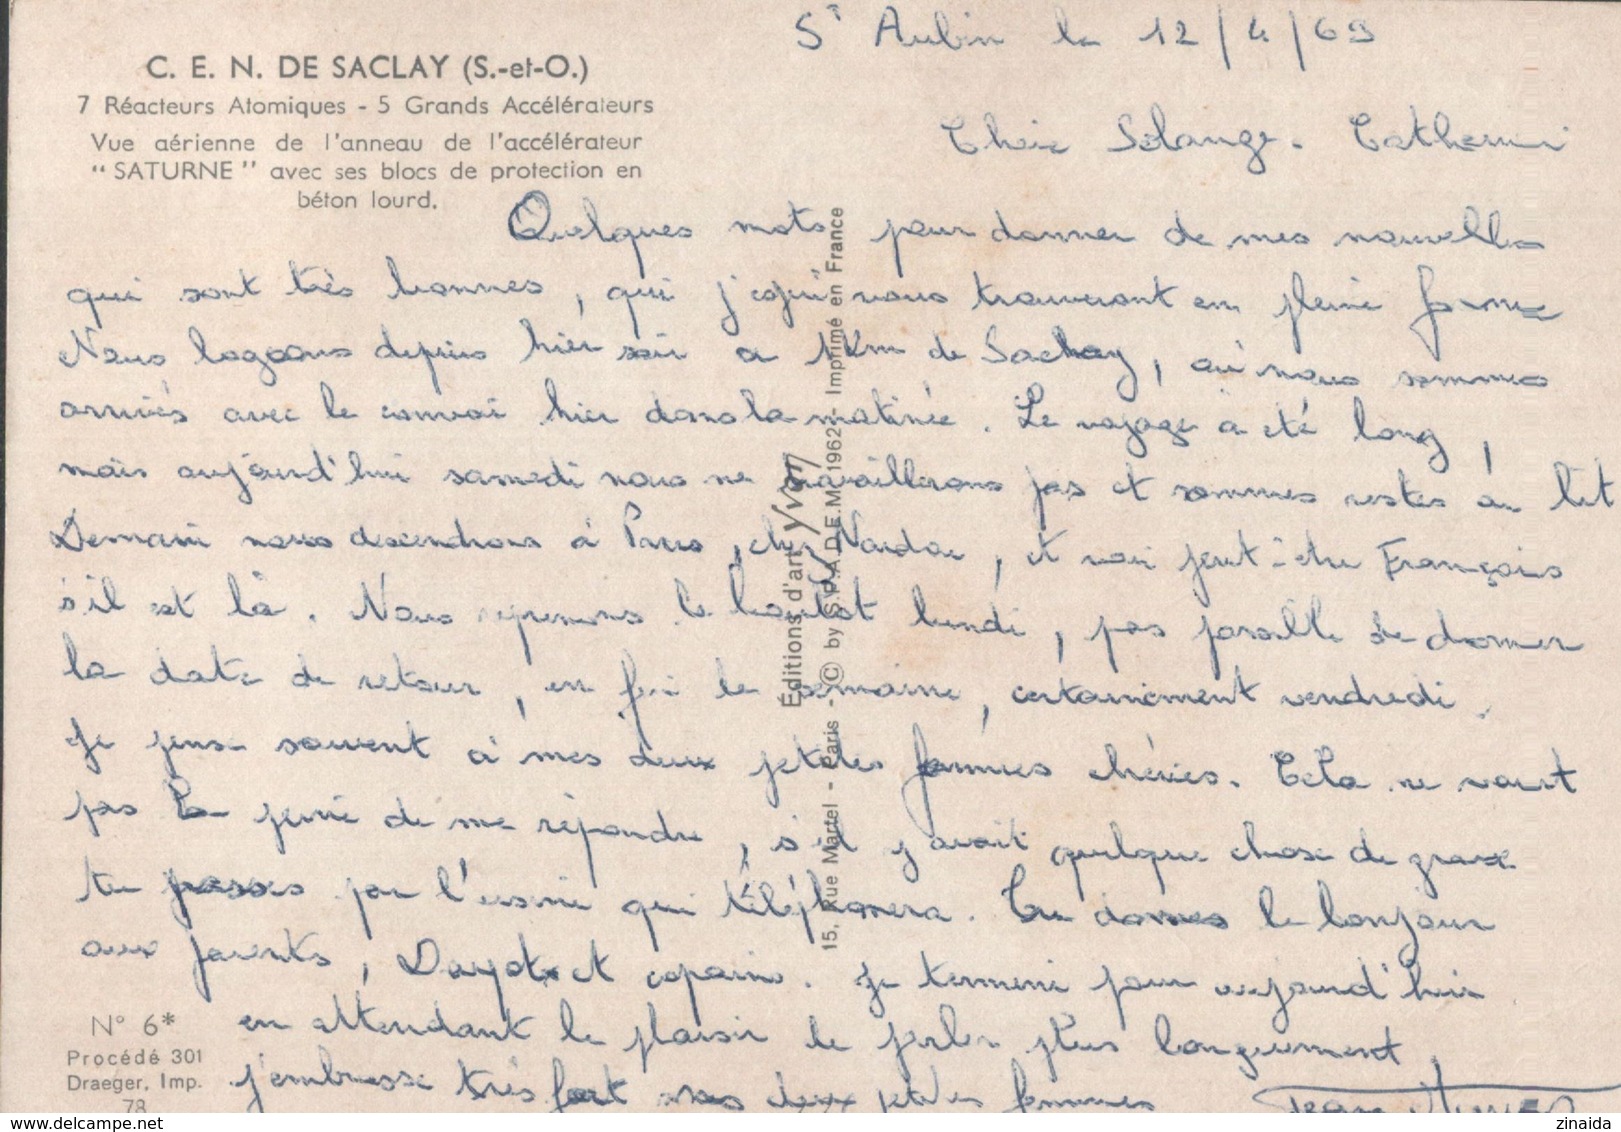 St Aubin le 12/4/69
C. E. N. DE SACLAY (S.-et-O.)
7 Réacteurs Atomiques - 5 Grands Accélérateurs
Vue aérienne de l'anneau de l'accélérateur
"SATURNE" avec ses blocs de protection en
béton lourd.
Chère Solange. Catherine
Quelques mots pour donner de mes nouvelles
qui sont très bonnes, qui j'espère vous trouveront en pleine forme
Nous logeons depuis hier soir a 1 Km de Saclay, où nous sommes
arrivés avec le convoi hier dans la matinée. Le voyage a été long,
mais aujourd'hui samedi nous ne travaillerons pas et sommes restés au lit
Demain nous descendrons à Paris, chez, et voir peut-être François
s'il est là. Nous reprenons le boulot lundi, pas possible de donner
la date de retour, en fin de semaine, certainement vendredi.
Je pense souvent à mes deux petites femmes chéries. Cela ne vaut
pas la peine de me répondre, s'il y avait quelque chose de grave
tu passes par l'usine qui téléphonera. Tu donnes le bonjour
aux parents, et copains. Je termine pour aujourd'hui
en attendant le plaisir de parler plus longuement,
j'embrasse très fort mes deux petites femmes
Jean
Éditions d'art Yvon
15, Rue Martel - Paris - © by S.P.A.D.E.M. 1962 - Imprimé en France
N° 6*
Procédé 301
Draeger, Imp.
78
delcampe.net
zinaida